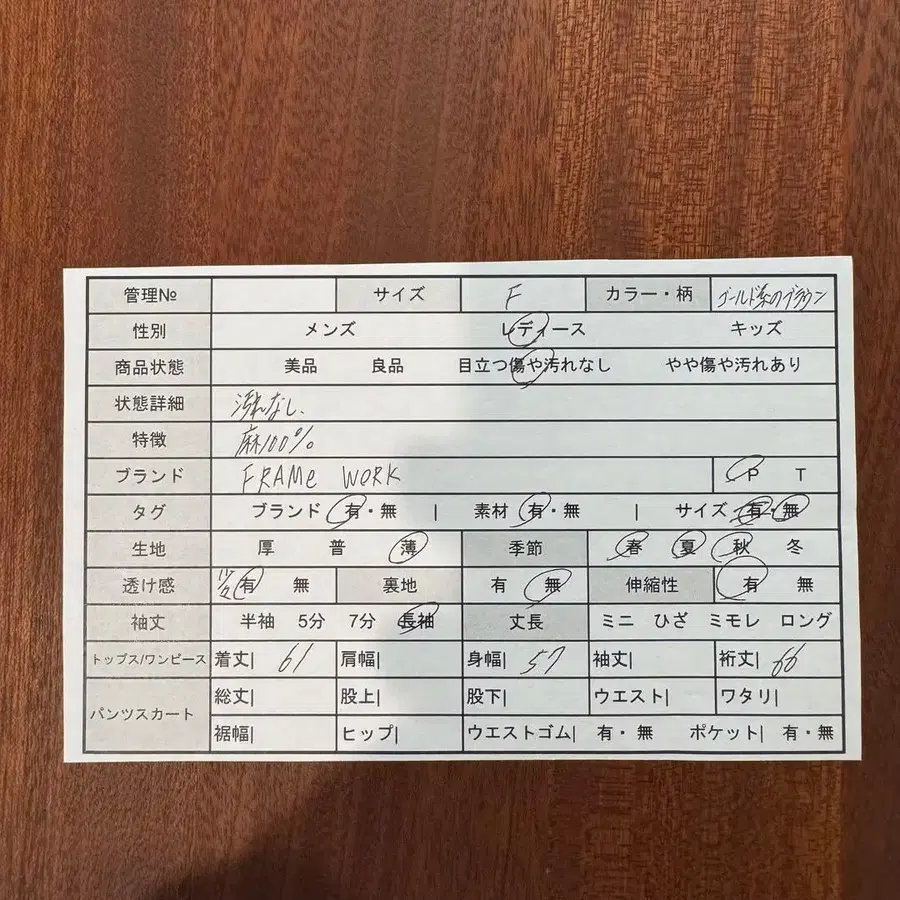 管理№ サイズ F カラー・柄 ゴールド系のブラウン
性別 メンズ レディース キッズ
商品状態 美品 良品 目立つ傷や汚れなし やや傷や汚れあり
状態詳細 汚れなし、
特徴 麻100%
ブランド FRAMe WORK P T
タグ ブランド 有・無 | 素材 有・無 | サイズ 有・無
生地 厚 普 薄 季節 春 夏 秋 冬
透け感 有 無 裏地 有 無 伸縮性 有 無
袖丈 半袖 5分 7分 長袖 丈長 ミニ ひざ ミモレ ロング
トップス/ワンピース 着丈| 61 肩幅| 身幅| 57 袖丈| 裄丈| 66
パンツスカート 総丈| 股上| 股下| ウエスト| ワタリ|
裾幅| ヒップ| ウエストゴム| 有・無 ポケット| 有・無